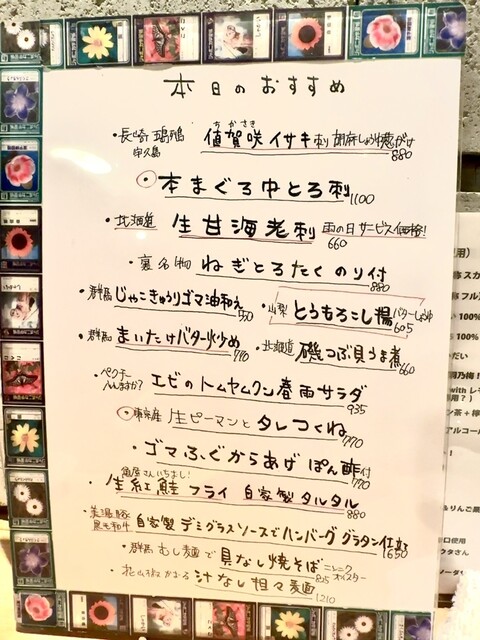 本日のおすすめ
・長崎 宇久島 値賀咲 ちかさき イサキ刺 胡麻しょうゆ 880
本まぐろ中とろ刺 1100
・北海道 生甘海老刺 雨の日サービス価格! 660
・裏名物 ねぎとろたく のり付 880
・群馬 じゃこきゅうりゴマ油和え 550
・山梨 とうもろこし揚 バターしょうゆ 605
・群馬 まいたけバター炒め 770
・北海道 磯つぶ貝うま煮 660
・ペクチー へんますか? エビのトムヤムクン春雨サラダ 935
・東京産 生ピーマンとタレつくね 770
・ゴマふぐからあげ ぽん酢付 770
魚屋さんいちおし!
・生紅鮭フライ 自家製タルタル 880
黒毛和牛 自家製デミグラスソースでハンバーググラタン仕立 1650
・群馬 むし麺で具なし焼そば ニンニク オイスター 825
・花山椒かおる 汁なし担々麺 1210